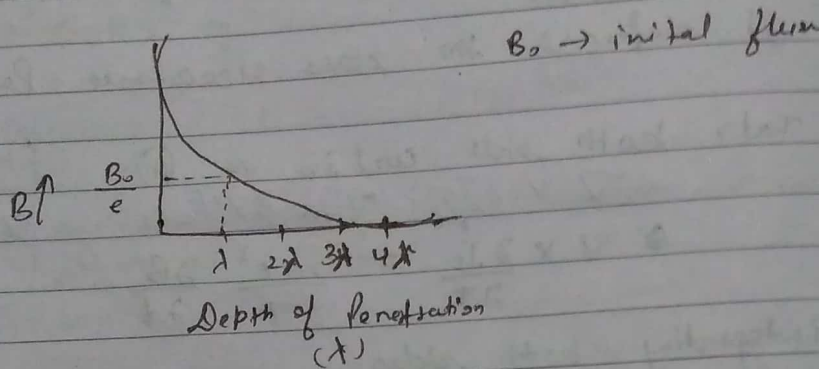 B₀ → inital flux
B↑ B₀/e
λ 2λ 3λ 4λ
Depth of Penetration
(λ)